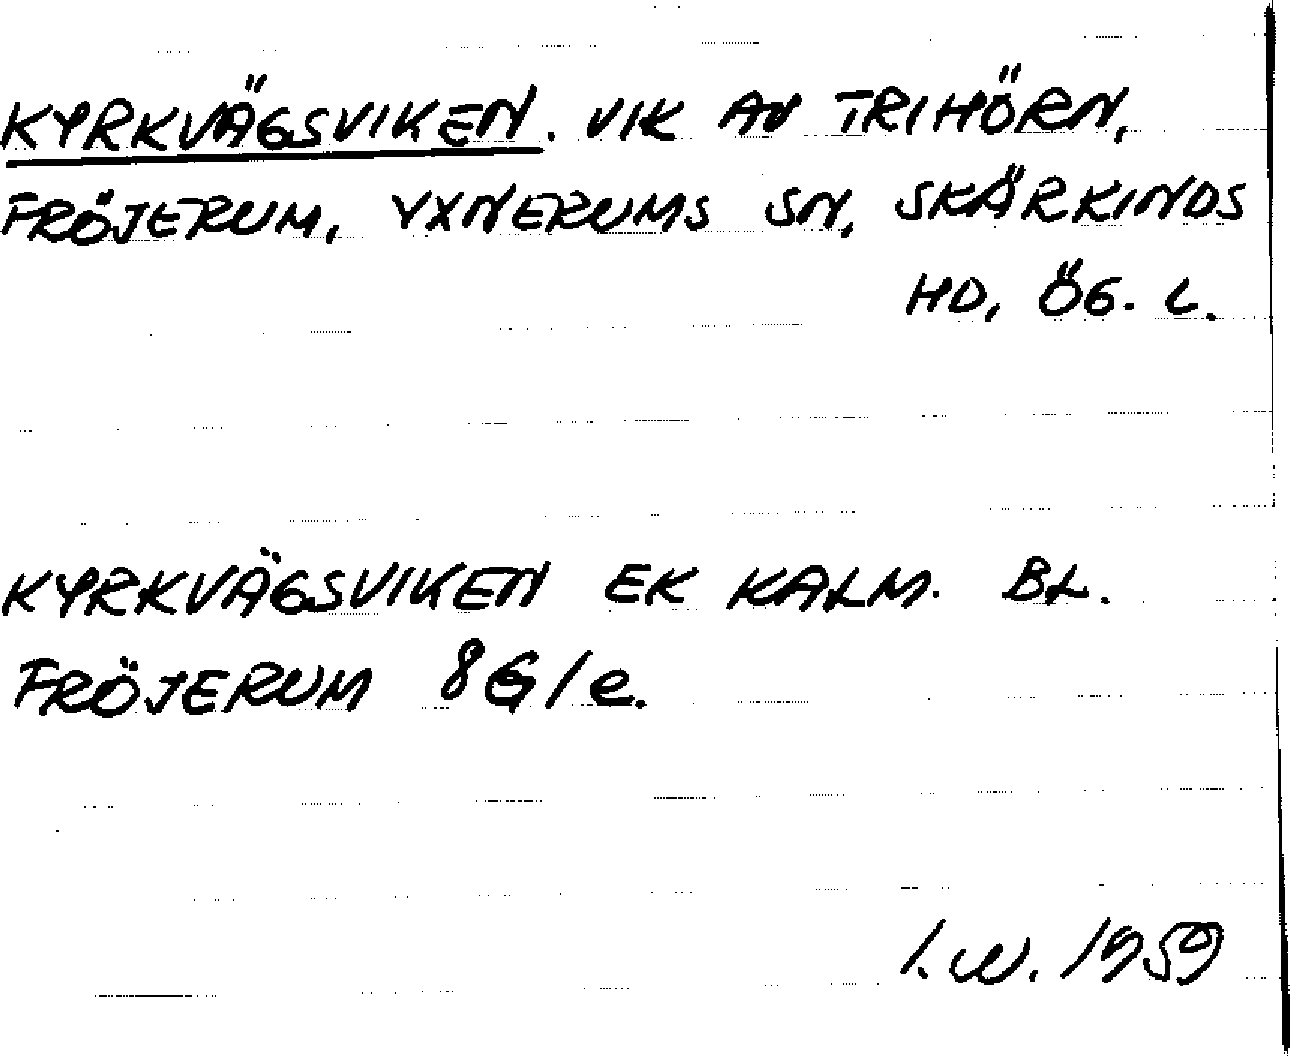 KYRKVÄGSVIKEN. VIK AV TRIHÖRN,
FRÖJERUM, YXNERUMS SN, SKÄRKINDS
HD, ÖG. L.
KYRKVÄGSVIKEN EK KALM. BL.
FRÖJERUM 8G/e.
I.W. 1959